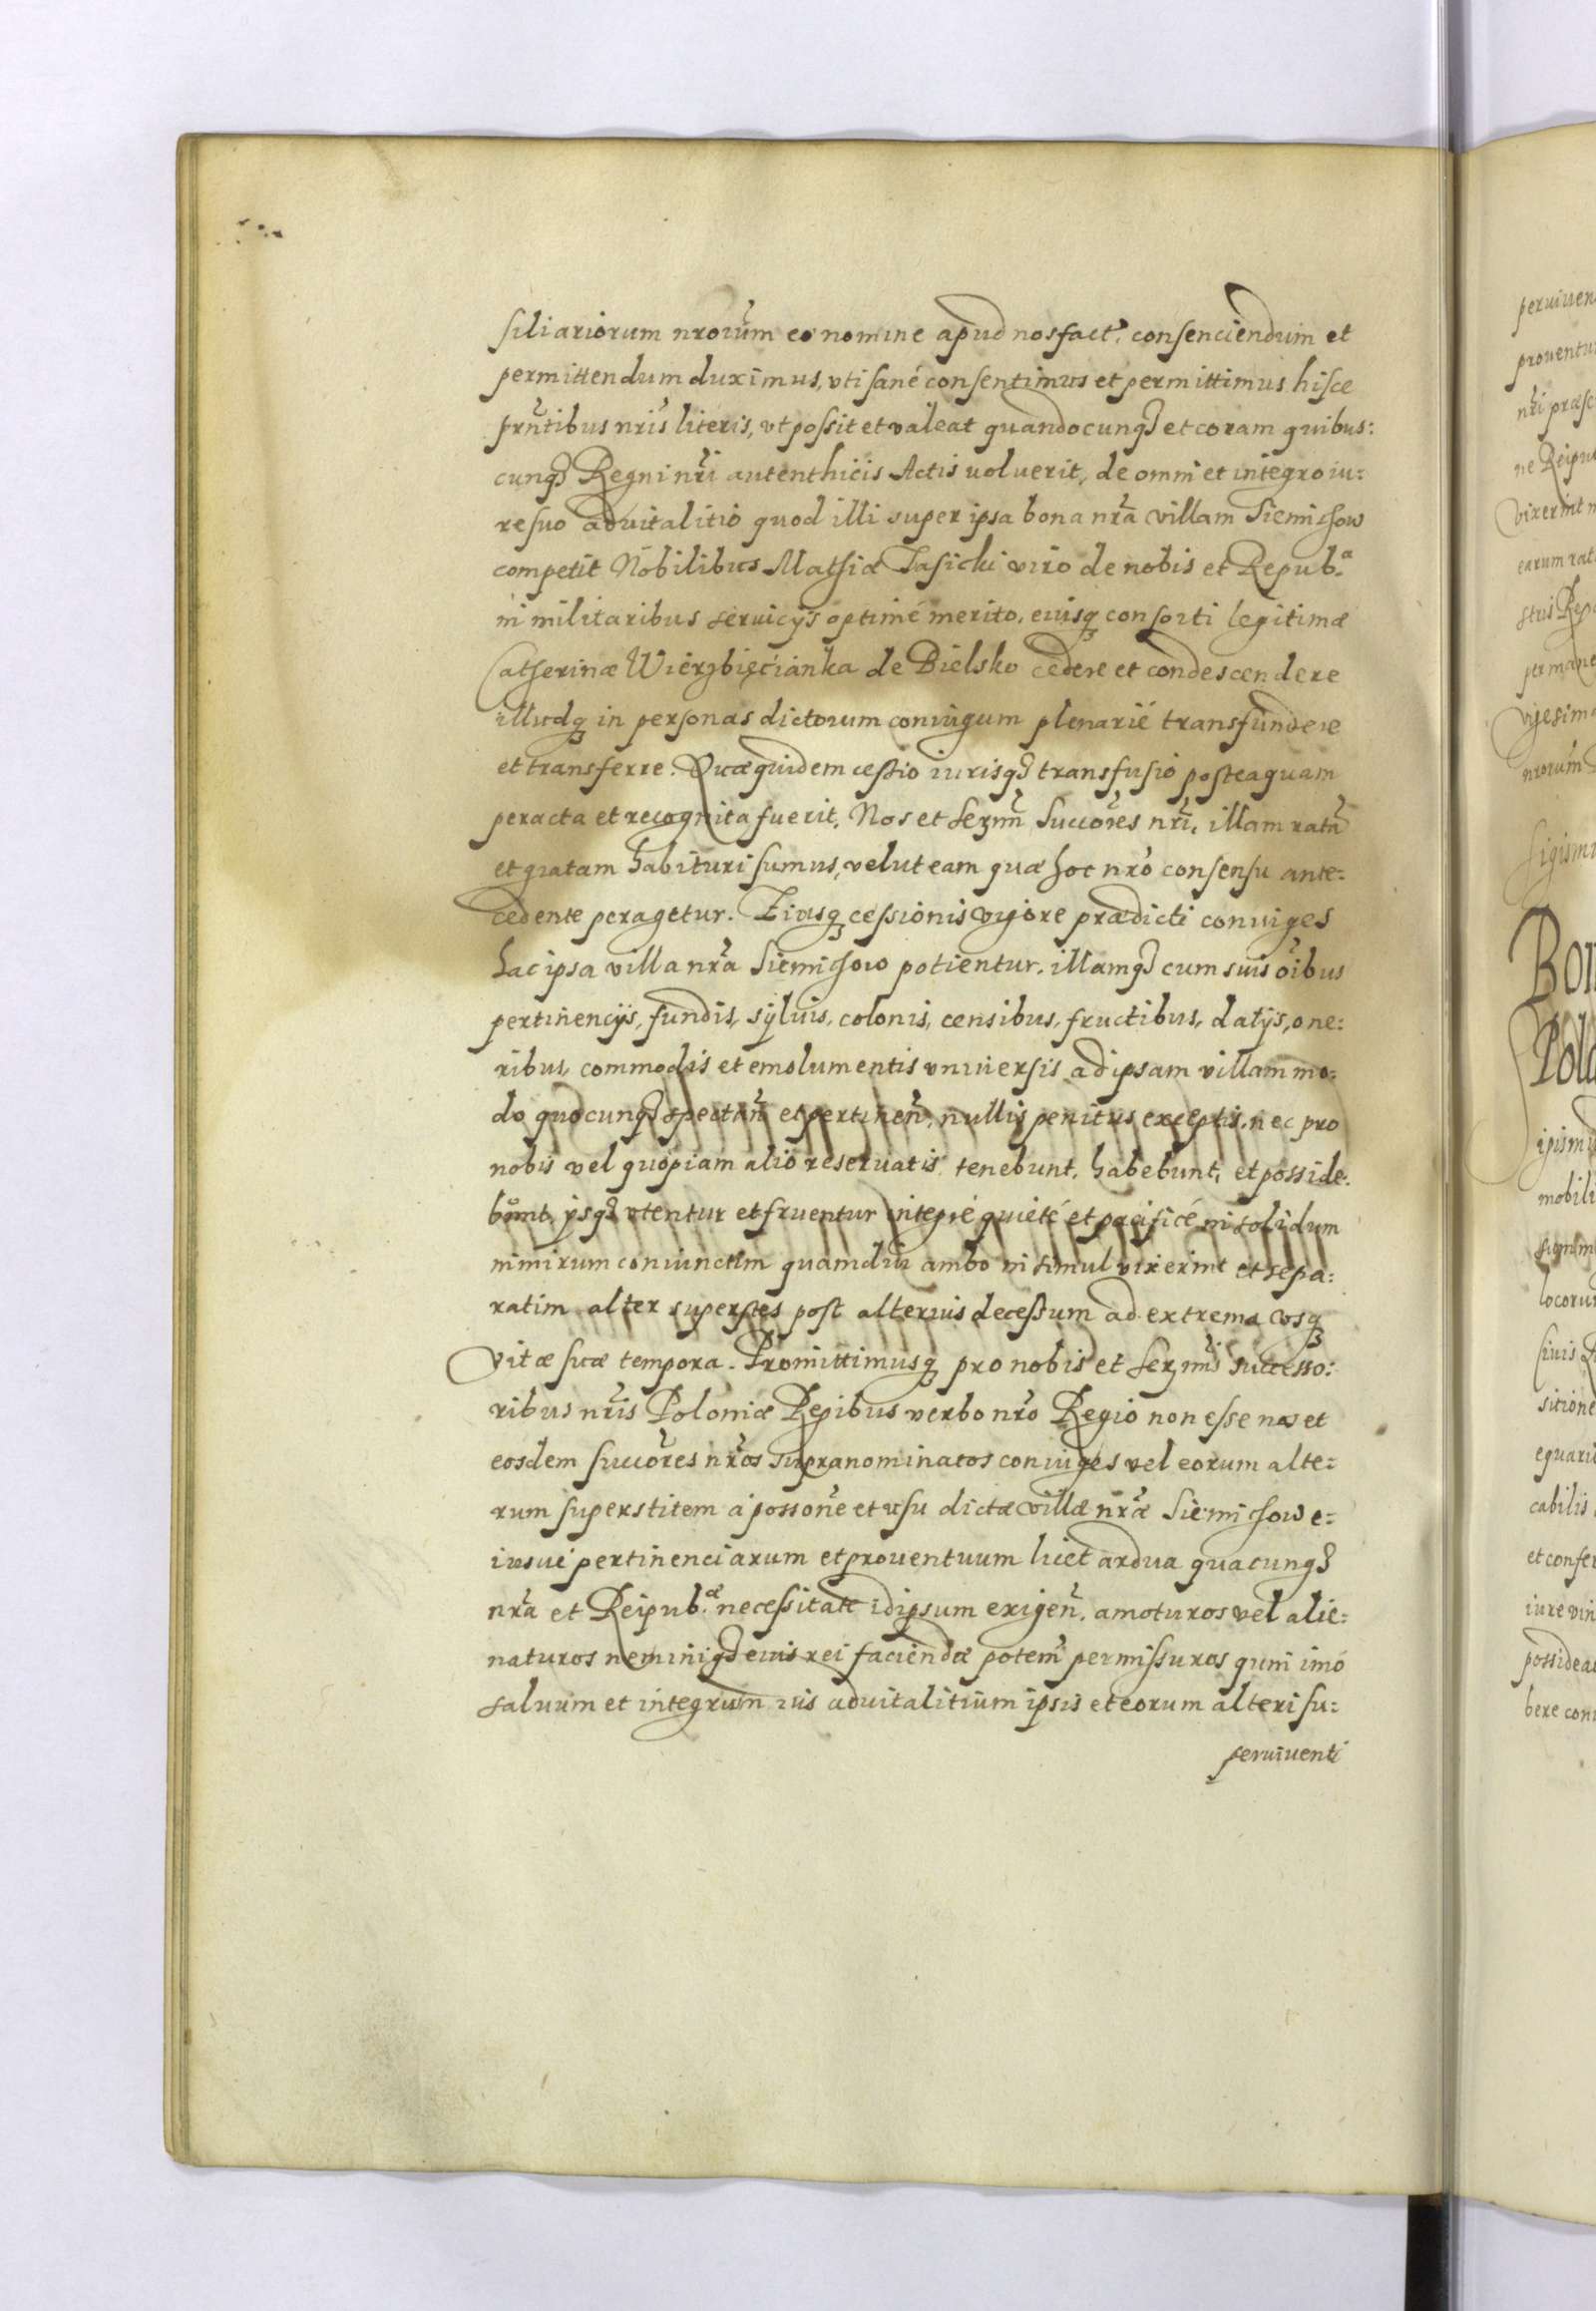 siliariorum nrorum eo nomine apud nos fact. consenciendum et
permittendum duximus, vti sané consentimus et permittimus hisce
prntibus nris literis, vt possit et valeat quandocunq et coram quibus:
cunq Regni nri autenthicis Actis uoluerit, de omni et integro iu:
re suo aduitalitio quod illi super ipsa bona nra villam Siemichow
competit Nobilibus Mathiæ Jasicki viro de nobis et Repub.a
in militaribus seruicys optimé merito, eiusq consorti legitimæ
Catherinæ Wierzbięcianka de Bielsko cedere et condescendere
illudq in personas dictorum coniugum plenarié transfundere
et transferre. Quæ quidem cessio iurisq transfusio posteaquam
peracta et recognita fuerit, Nos et Sermi Succores nri, illam ratā
et gratam habituri sumus, velut eam quæ hoc nro consensu ante:
cedente peragetur. Eiusq cessionis vigore prædicti coniuges
hac ipsa villa nra Siemichow potientur, illamq cum suis oibus
pertinencys, fundis, syluis, colonis, censibus, fructibus, datys, one:
ribus, commodis et emolumentis vniuersis ad ipsam villam mo:
do quocunq spectan et pertinen, nullis penitus exceptis, nec pro
nobis vel quopiam alio reseruatis tenebunt, habebunt, et posside:
bunt, ysq vtentur et fruentur integré quieté et pacificé in solidum
nimirum coniunctim quamdiu ambo in simul vixerint et sepa:
ratim alter superstes post alterius decessum ad extrema vsq
vitæ suæ tempora. Promittimusq pro nobis et Sermis Successo:
ribus nris Poloniæ Regibus verbo nro Regio non esse nos et
eosdem succores nros supranominatos coniuges vel eorum alte:
rum superstitem á possone et vsu dictæ villæ nræ Siemichow e:
iusué pertinenciarum et prouentuum licet ardua quacunq
nra et Reipub.æ necessitate id ipsum exigen, amoturos vel alie:
naturos neminiq eius rei faciendæ potem permissuros quin imó
saluum et integrum ius aduitalitium ipsis et eorum alteri su:
peruiuenti